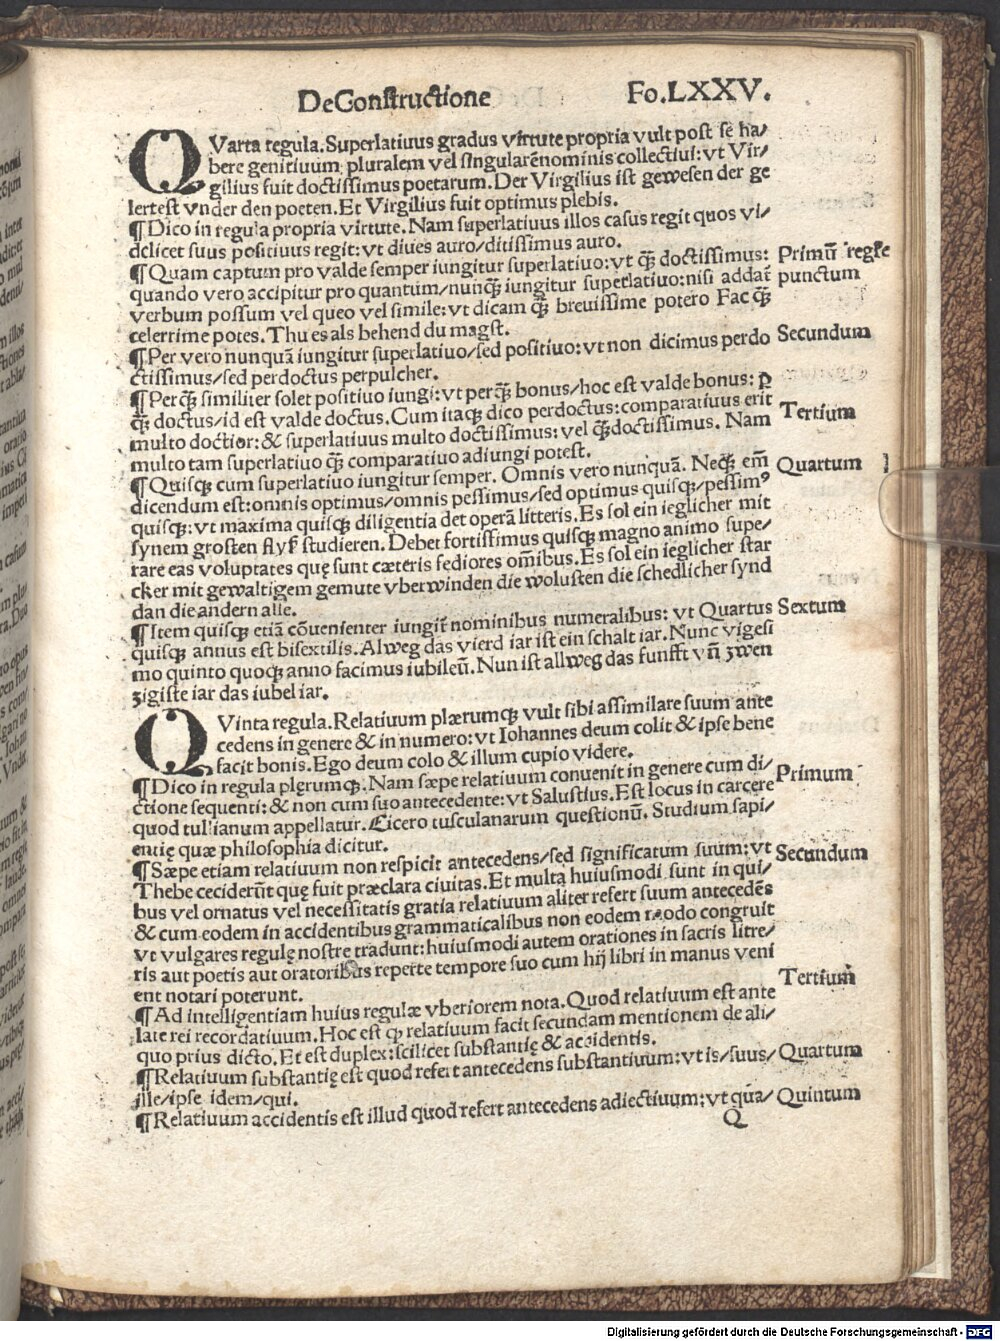 De Constructione Fo.LXXV.
QVarta regula. Superlatiuus gradus virtute propria vult post se ha/
bere genitiuum pluralem vel singularē nominis collectiui: vt Vir/
gilius fuit doctissimus poetarum. Der Virgilius ist gewesen der ge
lertest vnder den poeten. Et Virgilius fuit optimus plebis.
¶ Dico in regula propria virtute. Nam superlatiuus illos casus regit quos vi/
delicet suus positiuus regit: vt diues auro/ditissimus auro.
¶ Quam captum pro valde semper iungitur superlatiuo: vt q̄ȝ doctissimus: Primū regl̄e
quando vero accipitur pro quantum/nunq̄ȝ iungitur superlatiuo: nisi addat᷑ punctum
verbum possum vel queo vel simile: vt dicam q̄ȝ breuissime potero Fac q̄ȝ
celerrime potes. Thu es als behend du magst.
¶ Per vero nunquā iungitur superlatiuo/sed positiuo: vt non dicimus perdo Secundum
ctissimus/sed perdoctus perpulcher.
¶ Perq̄ȝ similiter solet positiuo iungi: vt perq̄ȝ bonus/hoc est valde bonus: ꝑ
q̄ȝ doctus/id est valde doctus. Cum itaqȝ dico perdoctus: comparatiuus erit Tertium
multo doctior: & superlatiuus multo doctissimus: vel q̄ȝdoctissimus. Nam
multo tam superlatiuo q̄ȝ comparatiuo adiungi potest.
¶ Quisqȝ cum superlatiuo iungitur semper. Omnis vero nunquā. Neqȝ em̄ Quartum
dicendum est: omnis optimus/omnis pessimus/sed optimus quisqȝ/pessimꝰ
quisqȝ: vt maxima quisqȝ diligentia det operā litteris. Es sol ein ieglicher mit
synem grosten flyß studieren. Debet fortissimus quisqȝ magno animo supe/
rare eas voluptates quę sunt cæteris fediores om̄ibus. Es sol ein ieglicher star
cker mit gewaltigem gemute vberwinden die wolusten die schedlicher synd
dan die andern alle.
¶ Item quisqȝ etiā cōuenienter iungit᷑ nominibus numeralibus: vt Quartus Sextum
quisqȝ annus est bisextilis. Alweg das vierd iar ist ein schalt iar. Nunc vigesi
mo quinto quoqȝ anno facimus iubileū. Nun ist allweg das funfft vn̄ zwen
zigiste iar das iubel iar.
QVinta regula. Relatiuum plærumqȝ vult sibi assimilare suum ante
cedens in genere & in numero: vt Iohannes deum colit & ipse bene
facit bonis. Ego deum colo & illum cupio videre.
¶ Dico in regula plęrumqȝ. Nam sæpe relatiuum conuenit in genere cum di/ Primum
ctione sequenti: & non cum suo antecedente: vt Salustius. Est locus in carcere
quod tullianum appellatur. Cicero tusculanarum questionū. Studium sapi/
entię quæ philosophia dicitur.
¶ Sæpe etiam relatiuum non respicit antecedens/sed significatum suum: vt Secundum
Thebe ceciderūt quę fuit præclara ciuitas. Et multa huiusmodi sunt in qui/
bus vel ornatus vel necessitatis gratia relatiuum aliter refert suum antecedēs
& cum eodem in accidentibus grammaticalibus non eodem modo congruit
vt vulgares regulę nostre tradunt: huiusmodi autem orationes in sacris litre/
ris aut poetis aut oratoribus reperte tempore suo cum hij libri in manus veni
ent notari poterunt. Tertium
¶ Ad intelligentiam huius regulæ vberiorem nota. Quod relatiuum est ante
late rei recordatiuum. Hoc est ꝙ relatiuum facit secundam mentionem de ali/
quo prius dicto. Et est duplex: scilicet substantię & accidentis.
¶ Relatiuum substantię est quod refert antecedens substantiuum: vt is/suus/ Quartum
ille/ipse idem/qui.
¶ Relatiuum accidentis est illud quod refert antecedens adiectiuum: vt qūa/ Quintum
Q
Digitalisierung gefördert durch die Deutsche Forschungsgemeinschaft - DFG